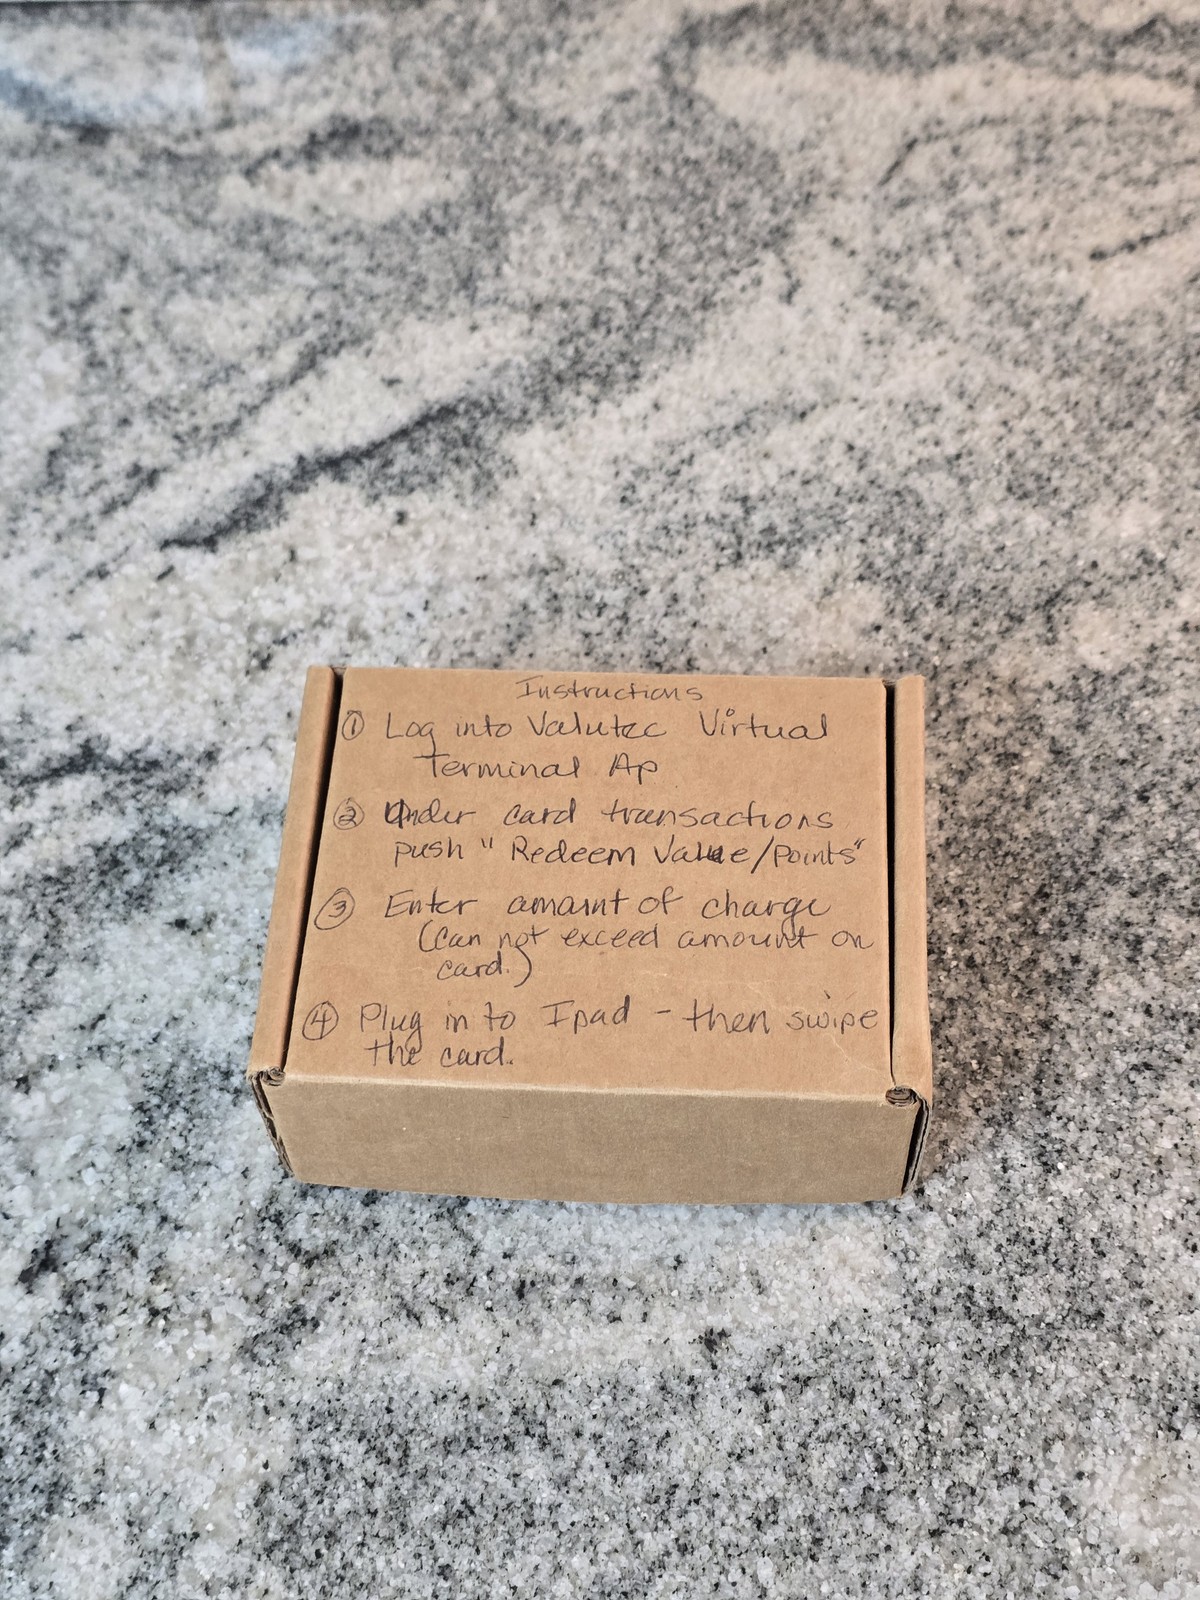 Instructions
① Log into Valutec Virtual
Terminal Ap
② Under card transactions
push "Redeem Value/Points"
③ Enter amount of charge
(Can not exceed amount on
card.)
④ Plug in to Ipad - then swipe
the card.